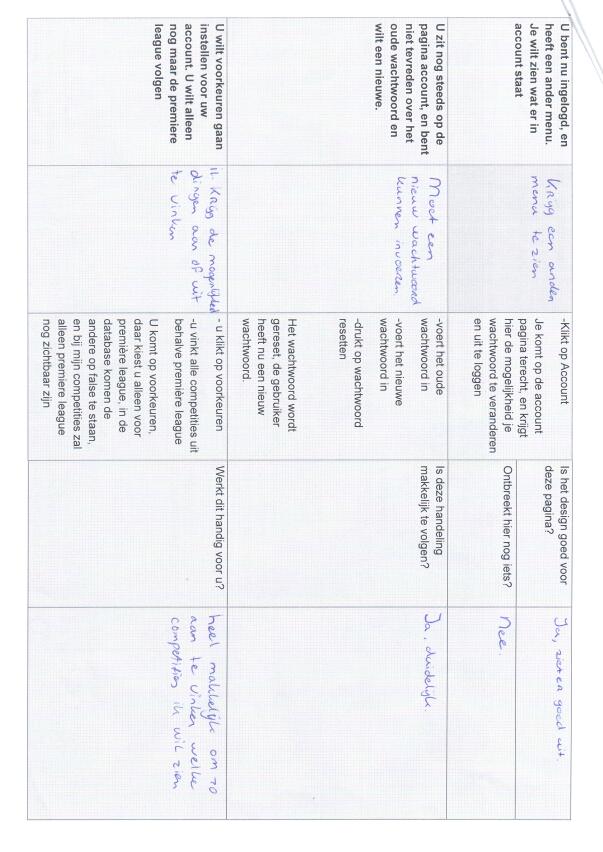 U bent nu ingelogd, en
heeft een ander menu.
Je wilt zien wat er in
account staat
Krijg een ander
menu te zien
-Klikt op Account
Je komt op de account
pagina terecht, en krijgt
hier de mogelijkheid je
wachtwoord te veranderen
en uit te loggen
Is het design goed voor
deze pagina?
Ja, ziet er goed uit.
Ontbreekt hier nog iets?
Nee.
U zit nog steeds op de
pagina account, en bent
niet tevreden over het
oude wachtwoord en
wilt een nieuwe.
Moet een
nieuw wachtwoord
kunnen invoeren
-voert het oude
wachtwoord in
-voert het nieuwe
wachtwoord in
-drukt op wachtwoord
resetten
Het wachtwoord wordt
gereset, de gebruiker
heeft nu een nieuw
wachtwoord.
Is deze handeling
makkelijk te volgen?
Ja, duidelijk.
U wilt voorkeuren gaan
instellen voor uw
account. U wilt alleen
nog maar de premiere
league volgen
krijg de mogelijkheid
dingen aan of uit
te vinken
- u klikt op voorkeuren
-u vinkt alle competities uit
behalve première league
U komt op voorkeuren,
daar kiest u alleen voor
première league, in de
database komen de
andere op false te staan,
en bij mijn competities zal
alleen premiere league
nog zichtbaar zijn
Werkt dit handig voor u?
heel makkelijk om zo
aan te vinken welke
competities ik wil zien